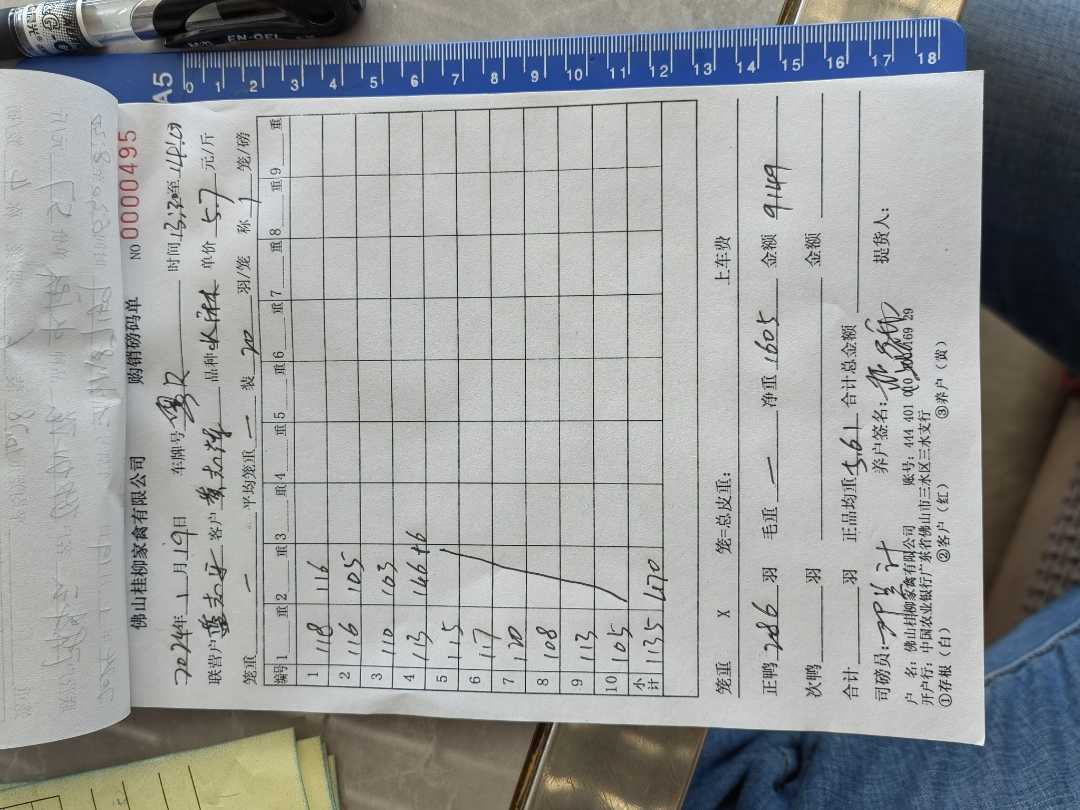 佛山桂柳家禽有限公司 购销磅码单 NO 0000495
2024年1月19日 车牌号 时间13:20至14:10
联营户 客户 品种 单价5.7元/斤
笼重 一 平均笼重 一 装20羽/笼 称1笼/磅
编号 1 重 2 重 3 重 4 重 5 重 6 重 7 重 8 重 9 重
1 118 116
2 116 105
3 110 103
4 113 146+6
5 115
6 117
7 120
8 108
9 113
10 105
小计 1135 470
笼重 X 笼=总皮重: 上车费
正鸭286羽 毛重 一 净重1605 金额9149
次鸭 羽 金额
合计 羽 正品均重5.61 合计总金额
司磅员: 养户签名: 提货人:
户 名: 佛山桂柳家禽有限公司 账号: 444 401 010
开户行: 中国农业银行广东省佛山市三水区三水支行
①存根(白) ②客户(红) ③养户(黄)
EN-GEL
A5
0 1 2 3 4 5 6 7 8 9 10 11 12 13 14 15 16 17 18